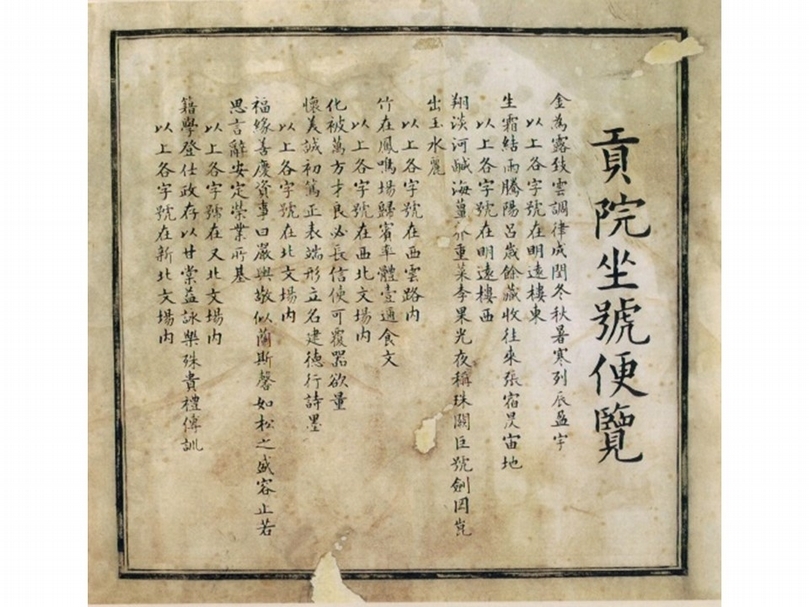 貢院坐號便覽
金為露致雲調律成閏冬秋暑寒列辰盈宇
以上各字號在明遠樓東
生霜結雨騰陽呂歲餘藏收往來張宿昃宙地
以上各字號在明遠樓西
翔淡河鹹海薑芥重菜李果光夜稱珠闕巨號劍岡崑
出玉水麗
以上各字號在西雲路內
竹在鳳鳴場歸賓率體壹遐食文
以上各字號在西北文場內
化被萬方才良必長信使可覆器欲量
懷美誠初篤正表端形立名建德行詩墨
以上各字號在北文場內
福緣善慶資事曰嚴與敬似蘭斯馨如松之盛容止若
思言辭安定榮業所基
以上各字號在又北文場內
籍學登仕政存以甘棠益詠樂殊貴禮傅訓
以上各字號在新北文場內